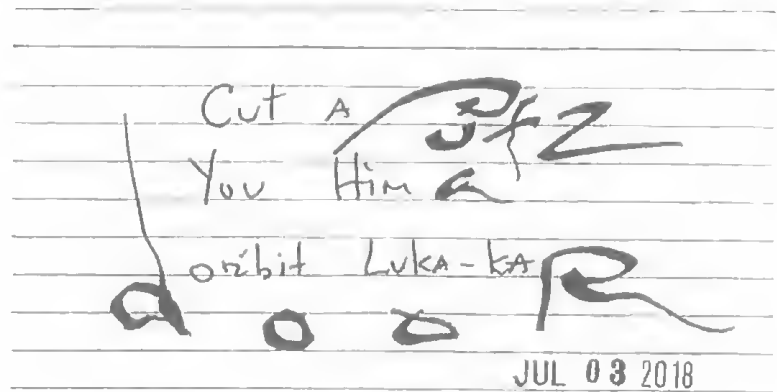 Cut A
You Him a
oribit LUKA-KA R
d o o
JUL 03 2018